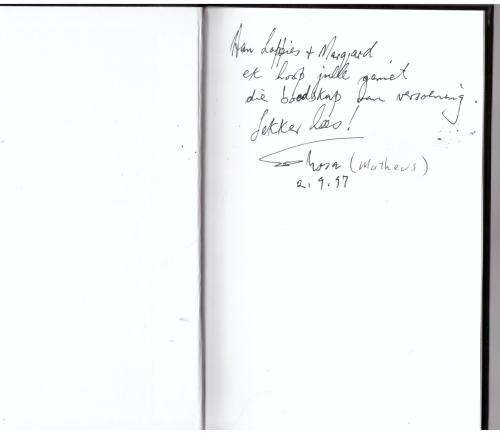 Aan Lappies + Margaard
ek hoop julle geniet
die boodskap van versoening.
Lekker lees!
Rosa (Matheus)
2.9.97